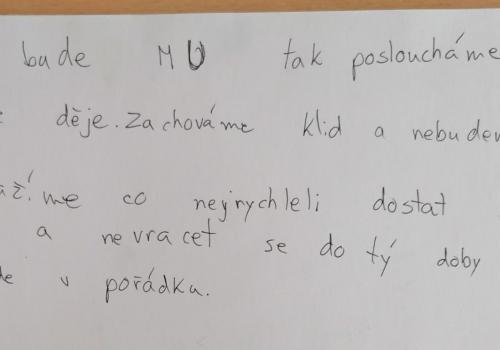 bude MU tak posloucháme
děje. Zachováme klid a nebudem
co nejrychleli dostat
a nevracet se do tý doby
v pořádku.